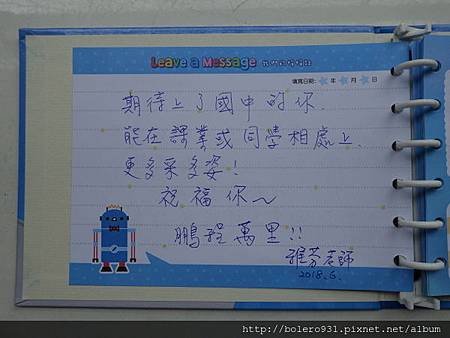 Leave a Message 我們的悄悄話
填寫日期: 年 月 日
期待上了國中的你.
能在課業或同學相處上.
更多采多姿!
祝福你~
鵬程萬里!!
雅芬老師
2018.6.
http://bolero931.pixnet.net/album